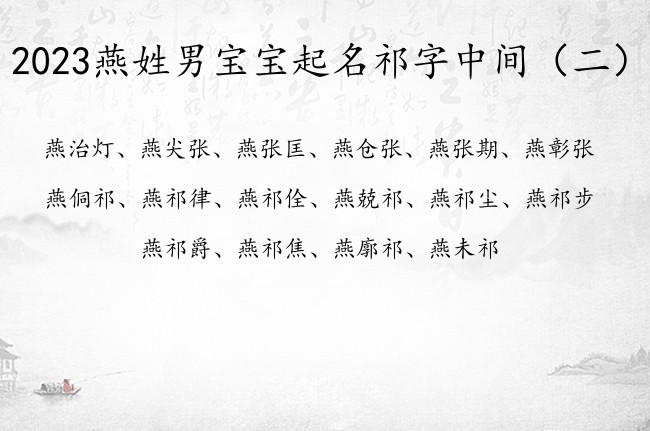 2023燕姓男宝宝起名祁字中间（二）
燕治灯、燕尖张、燕张匡、燕仓张、燕张期、燕彰张
燕侗祁、燕祁律、燕祁佺、燕兢祁、燕祁尘、燕祁步
燕祁爵、燕祁焦、燕廓祁、燕未祁